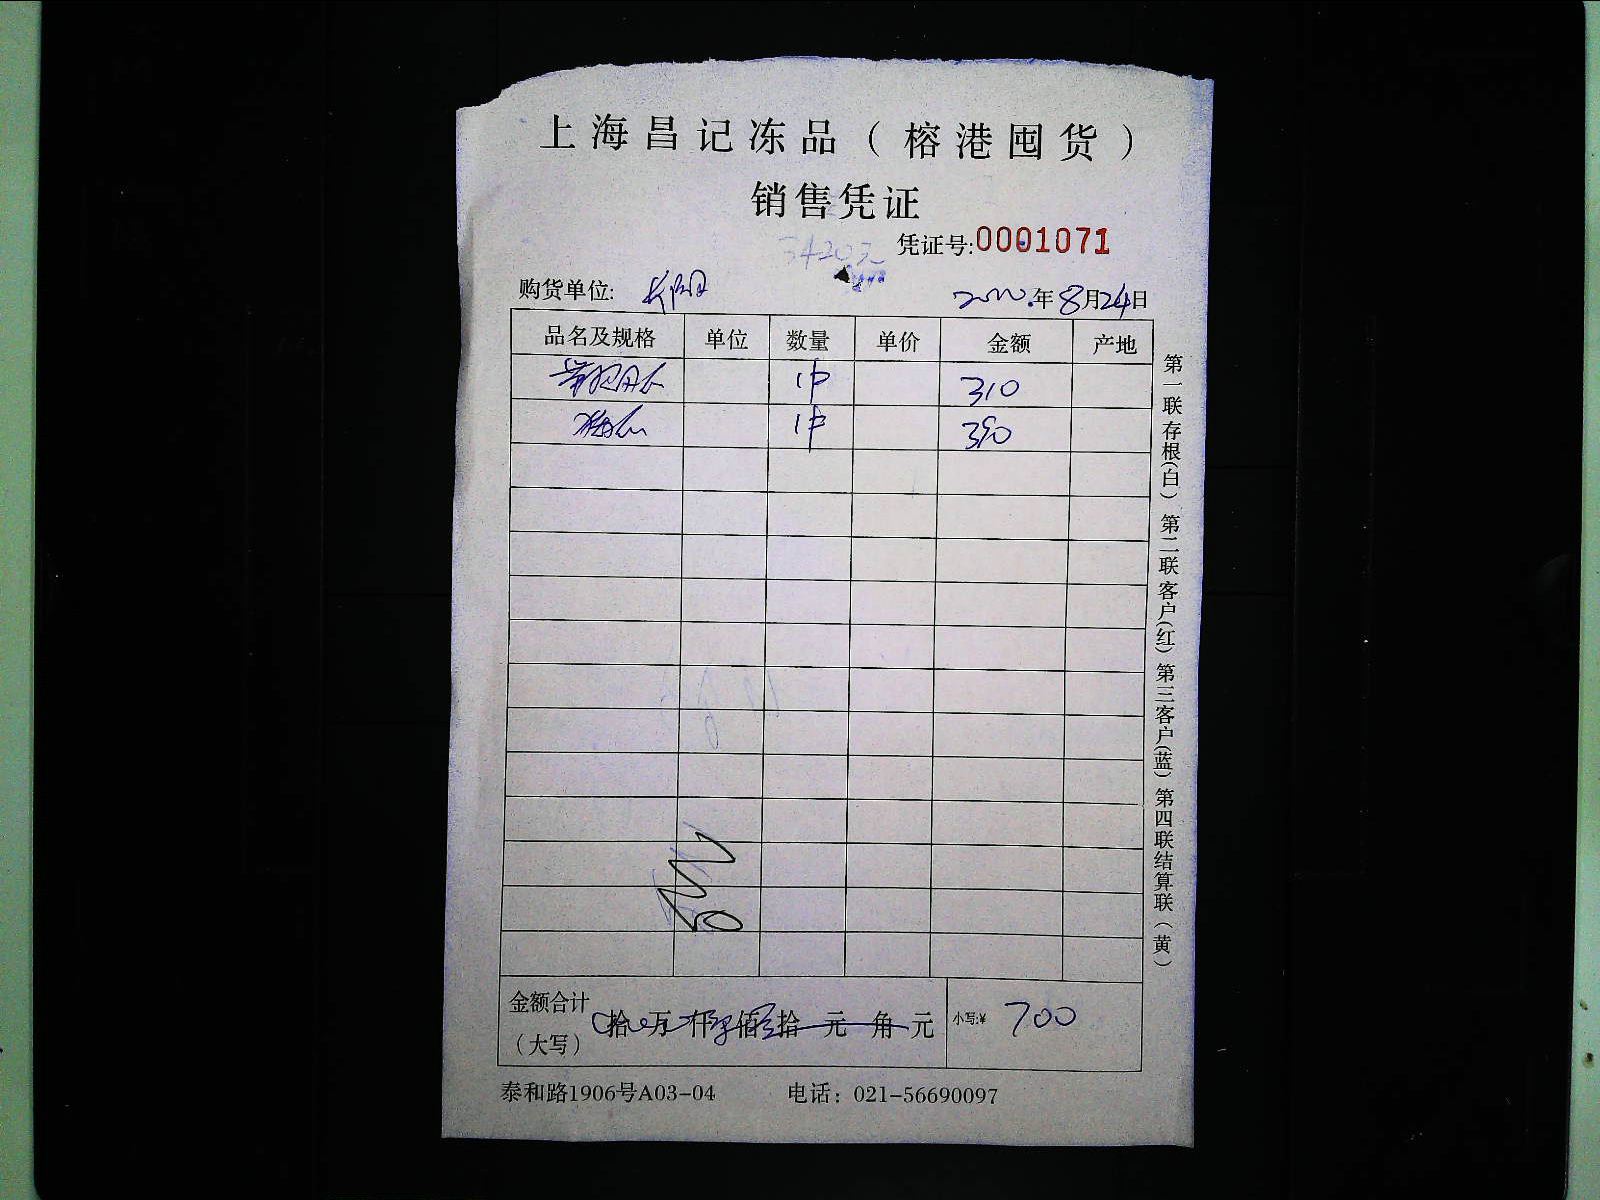 上海昌记冻品（榕港囤货）
销售凭证
3420元
凭证号:0001071
购货单位:
年8月24日
品名及规格 单位 数量 单价 金额 产地
1件 310
1件 390
金额合计（大写） 拾 万 仟 佰 拾 元 角 元 小写:¥ 700
泰和路1906号A03-04 电话：021-56690097
第一联存根(白) 第二联客户(红) 第三客户(蓝) 第四联结算联(黄)